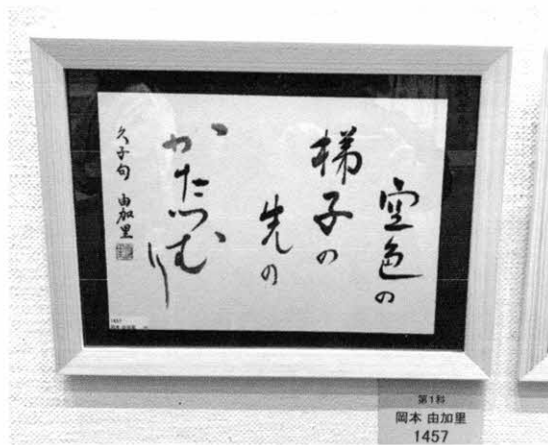 空色の
梯子の
先の
かたつむり
久子句 由加里
第1科
岡本 由加里
1457